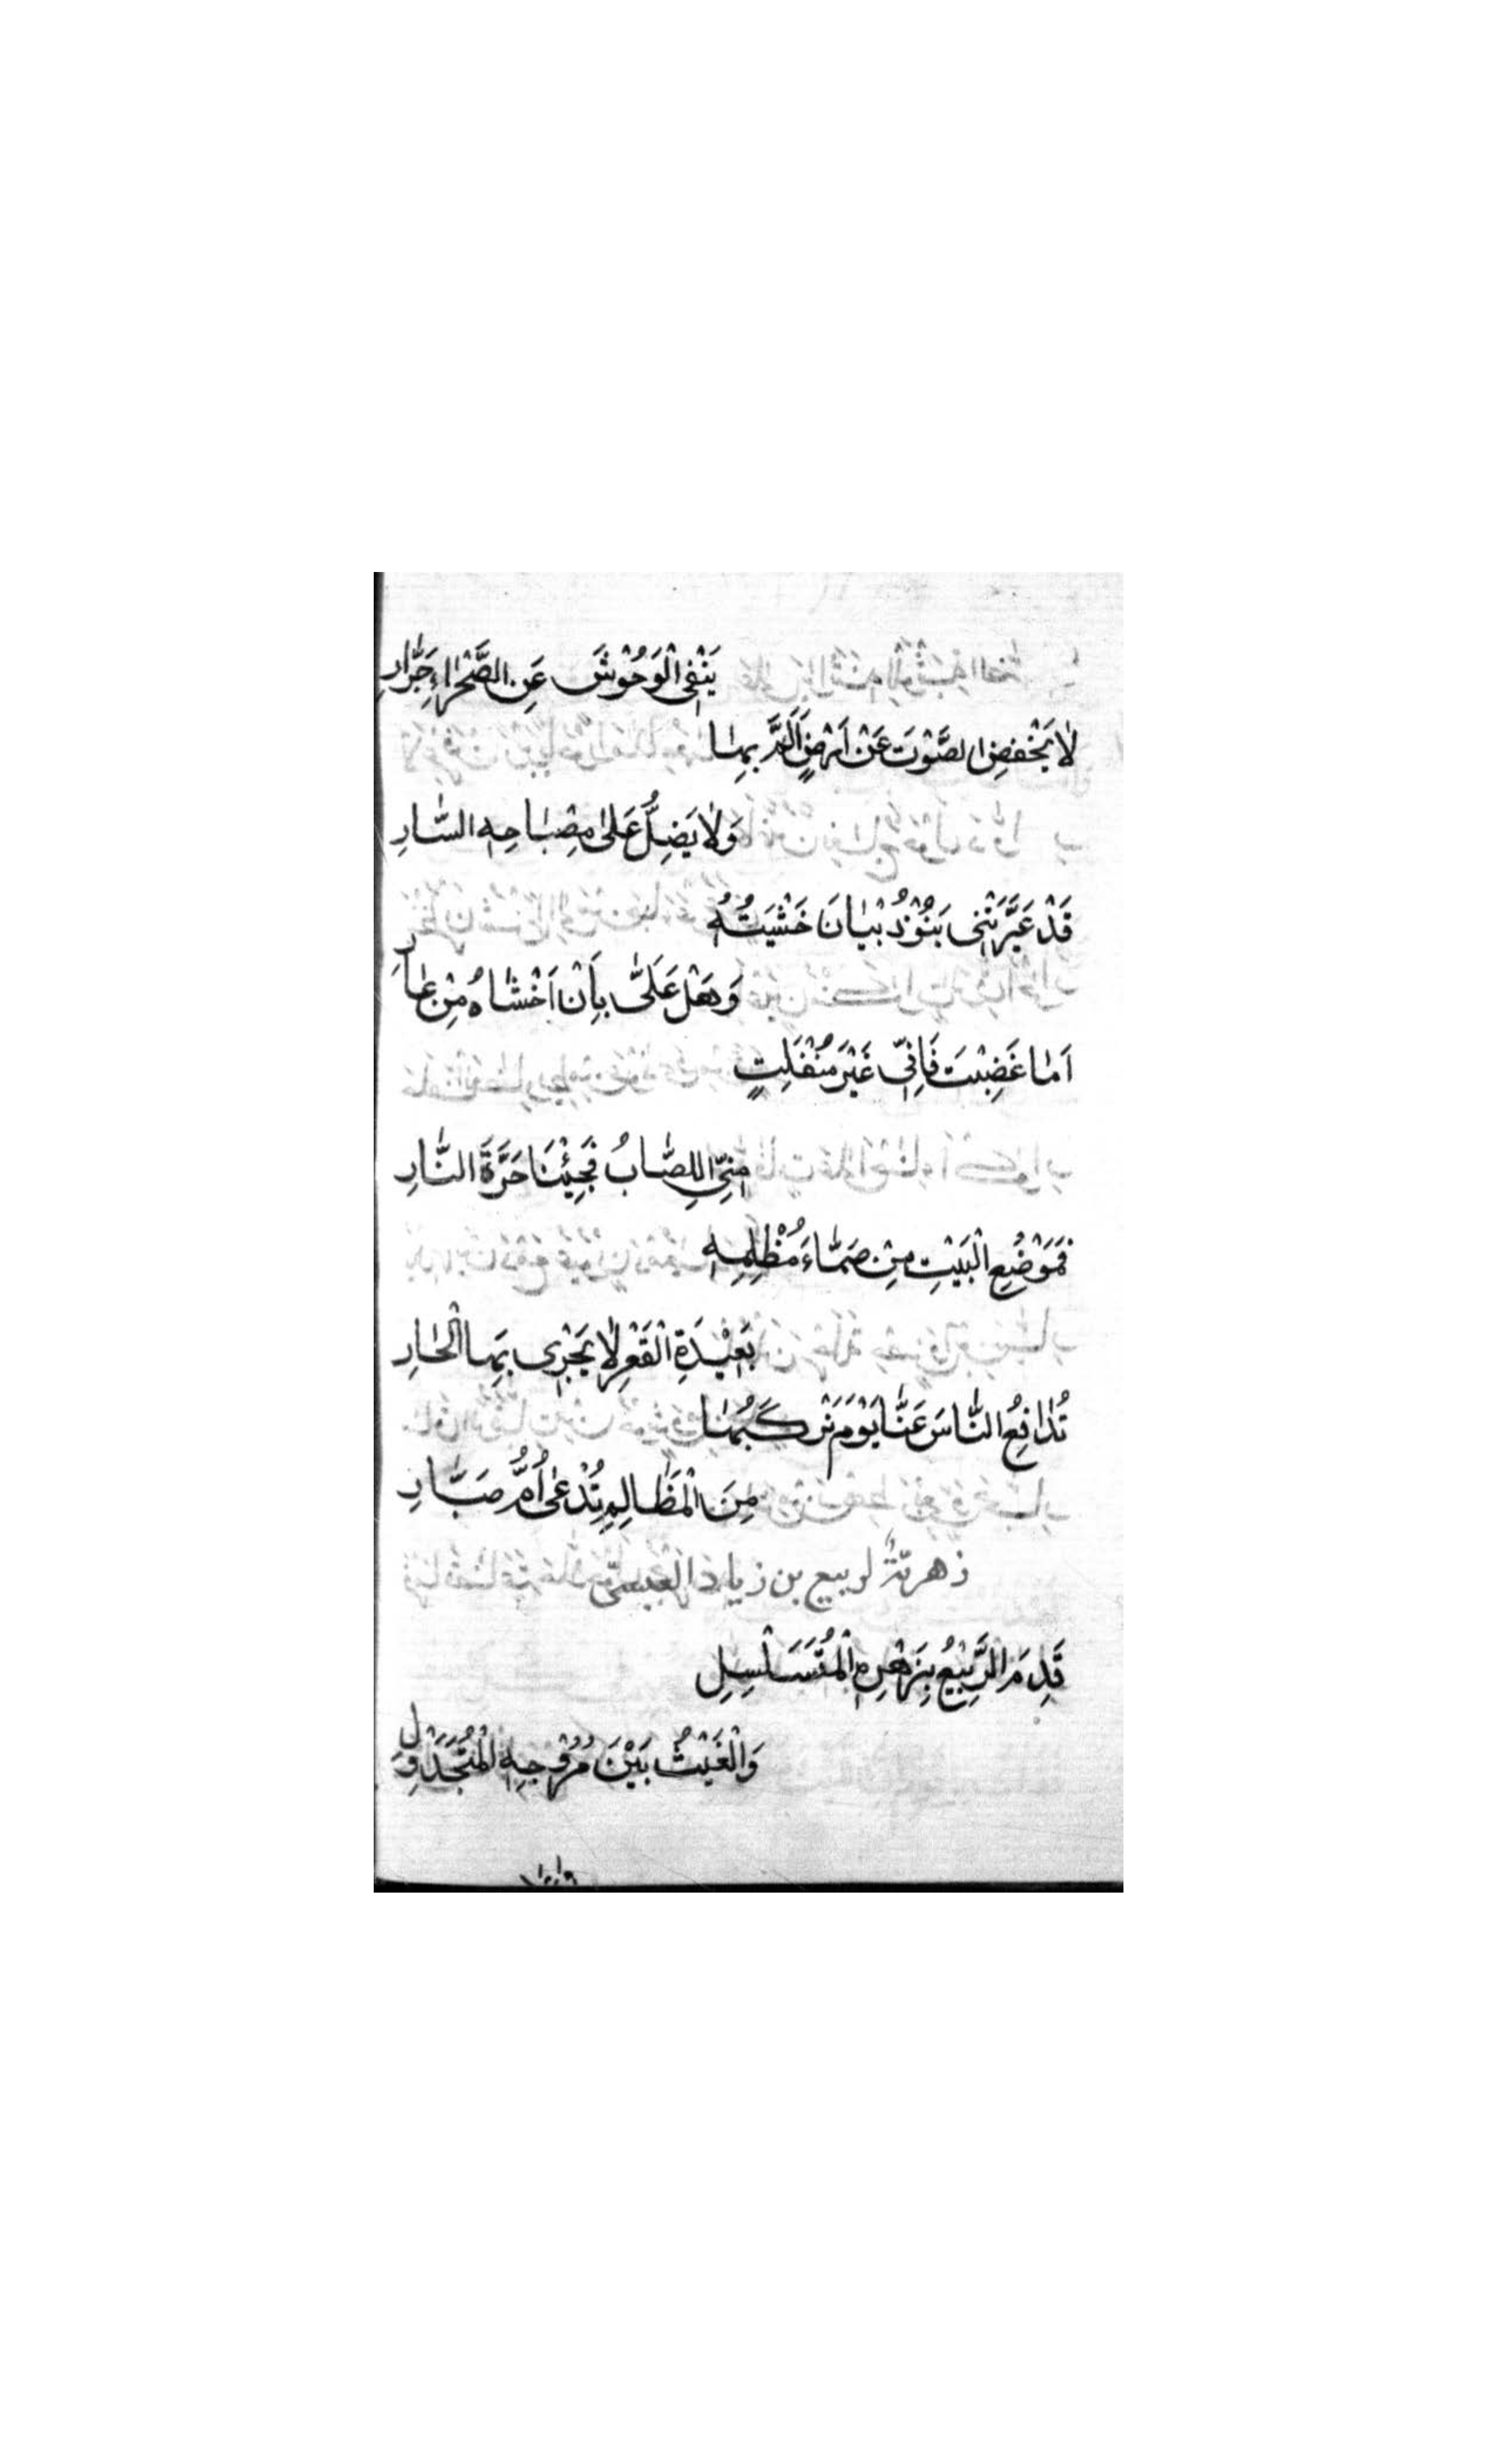 يَنْفِي الْوُحُوْشَ عَنِ الصَّحْرَاءِ جَرَّارِ
لَا يَخْفِضِ الصَّوْتَ عَنْ اَرْضٍ اَلَمَّ بِهَا
وَلَا يَضِلُّ عَلَى مِصْبَاحِهِ السَّارِ
قَدْ عَيَّرَتْنِي بَنُوْذُبْيَانَ خَشْيَتُهُ
وَهَلْ عَلَىَّ بِاَنْ اَخْشَاهُ مِنْ عَارِ
اَمَا غَضِبْتَ فَاِنِّي غَيْرَ مُنْفَلِتٍ
مِنِّي اللِّصَابُ فَجِئْنَا حَرَّةَ النَّارِ
فَمَوْضِعِ الْبَيْتِ مِنْ صَمَّاءَ مُظْلِمِهِ
بَعِيْدَةِ الْقَعْرِ لَا يَجْرِي بِهَا الْجَارِ
تُدَافِعُ النَّاسَ عَنَّا يَوْمَ نَرْكَبُهَا
مِنَ الْمَظَالِمِ تُدْعَى اُمُّ صَبَّارِ
زهريّة لربيع بن زياد العبسىّ
قَدِمَ الرَّبِيْعُ بِزَهْرِهِ الْمُتَسَلْسِلِ
وَالْغَيْثُ بَيْنَ مُرُوْجِهِ الْمُتَجَدْوِلِ